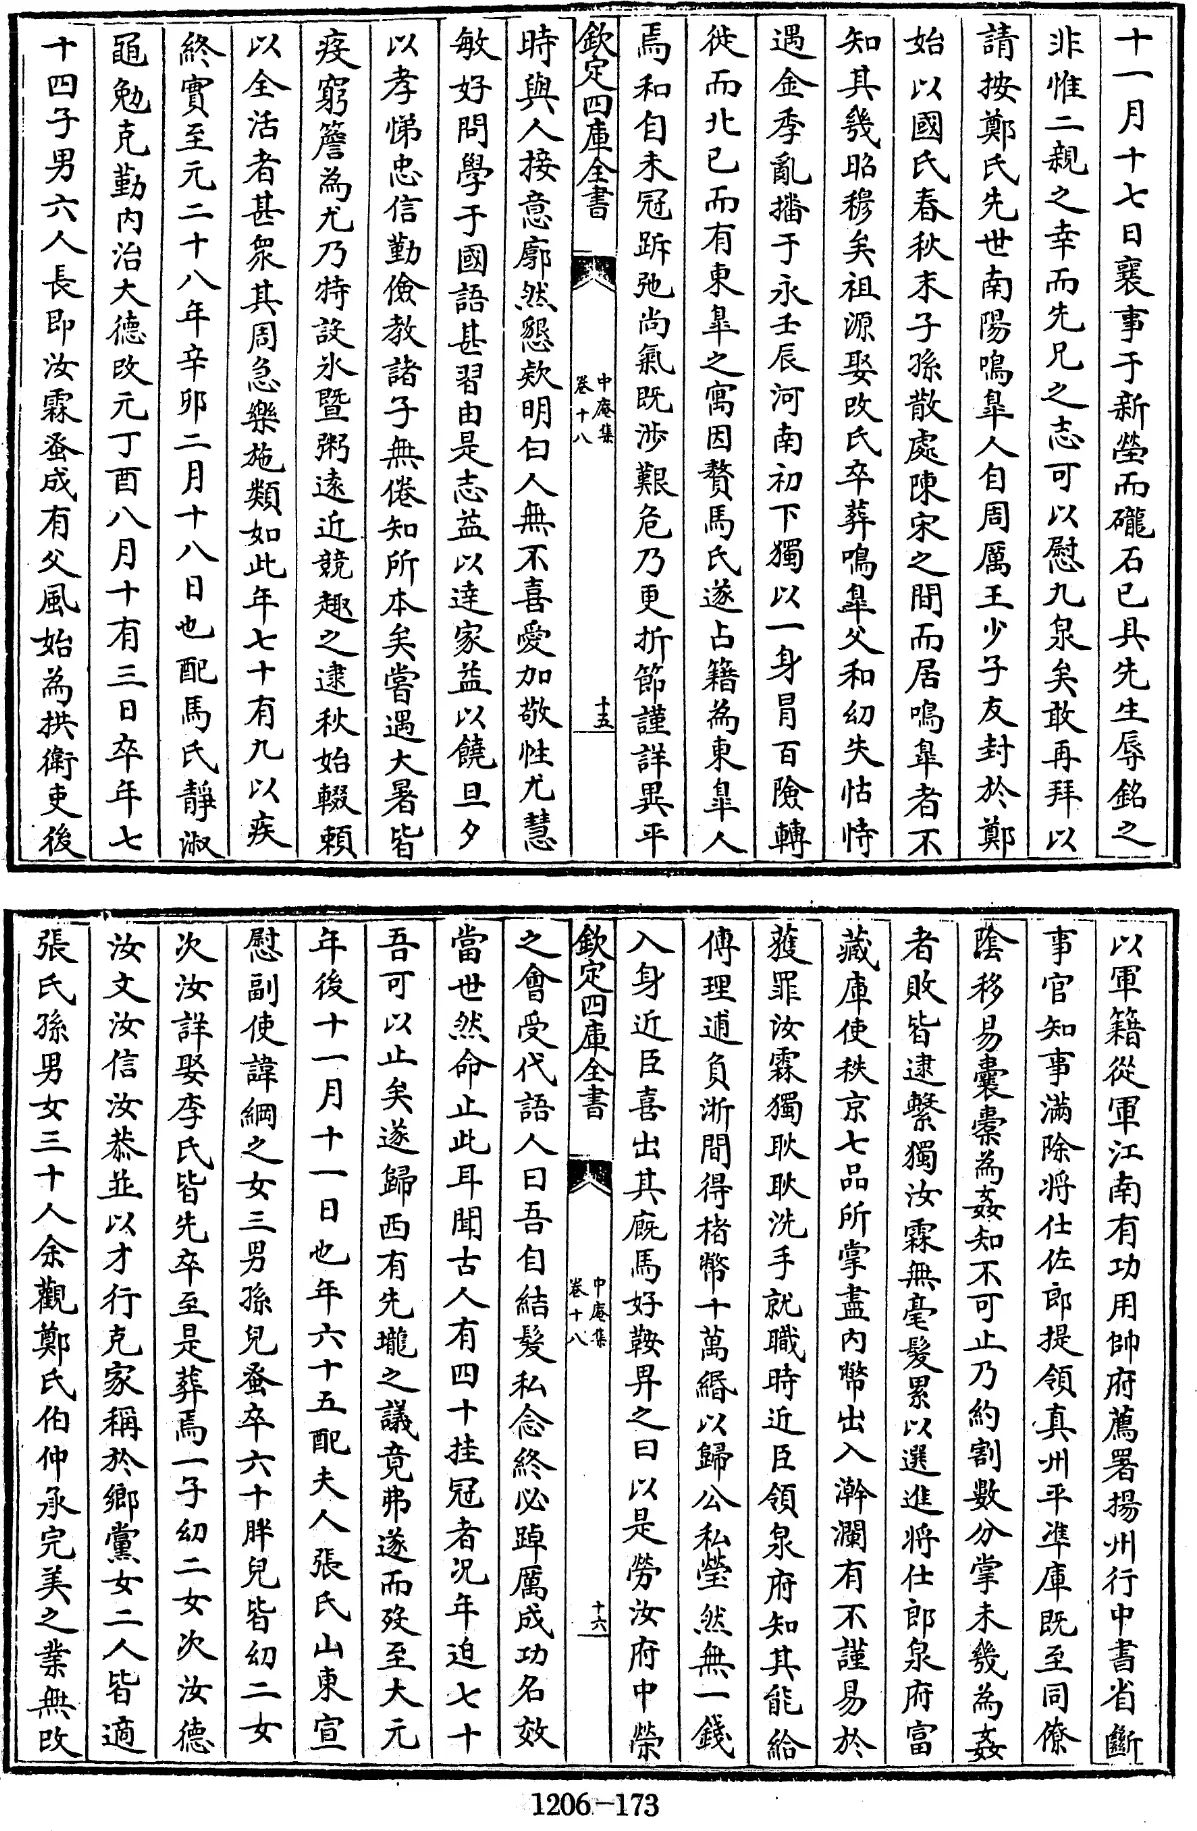 十一月十七日襄事于新塋而礲石已具先生辱銘之
非惟二親之幸而先兄之志可以慰九泉矣敢再拜以
請按鄭氏先世南陽鳴臯人自周厲王少子友封於鄭
始以國氏春秋末子孫散處陳宋之間而居鳴臯者不
知其幾昭穆矣祖源娶改氏卒葬鳴臯父和幼失怙恃
遇金季亂播于永壬辰河南初下獨以一身冒百險轉
徙而北已而有東臯之寓因贅馬氏遂占籍為東臯人
焉和自未冠跅弛尚氣既涉艱危乃更折節謹詳異平
欽定四庫全書
中庵集
卷十八
十五
時與人接意廓然懇欵明白人無不喜愛加敬性尤慧
敏好問學于國語甚習由是志益以達家益以饒旦夕
以孝悌忠信勤儉教諸子無倦知所本矣嘗遇大暑皆
疫窮簷為尤乃特設氷暨粥遠近競趣之逮秋始輟頼
以全活者甚衆其周急樂施類如此年七十有九以疾
終實至元二十八年辛卯二月十八日也配馬氏靜淑
黽勉克勤内治大德改元丁酉八月十有三日卒年七
十四子男六人長即汝霖蚤成有父風始為拱衛吏後
以軍籍從軍江南有功用帥府薦署揚州行中書省斷
事官知事滿除将仕佐郎提領真州平準庫既至同僚
陰移易囊橐為姦知不可止乃約割數分掌未幾為姦
者敗皆逮繫獨汝霖無毫髮累以選進将仕郎泉府富
藏庫使秩京七品所掌盡内幣出入澣瀾有不謹易於
蒦罪汝霖獨耿耿洗手就職時近臣領泉府知其能給
傅理逋負浙間得楮幣十萬緡以歸公私瑩然無一錢
入身近臣喜出其廐馬好鞍畀之曰以是勞汝府中榮
欽定四庫全書
中庵集
卷十八
十六
之會受代語人曰吾自結髮私念終必踔厲成功名效
當世然命止此耳聞古人有四十挂冠者况年迫七十
吾可以止矣遂歸西有先壠之議竟弗遂而殁至大元
年後十一月十一日也年六十五配夫人張氏山東宣
慰副使諱綱之女三男孫兒蚤卒六十胖兒皆幼二女
次汝詳娶李氏皆先卒至是葬焉一子幼二女次汝德
汝文汝信汝恭並以才行克家稱於鄉黨女二人皆適
張氏孫男女三十人余觀鄭氏伯仲承完美之業無改
1206-173